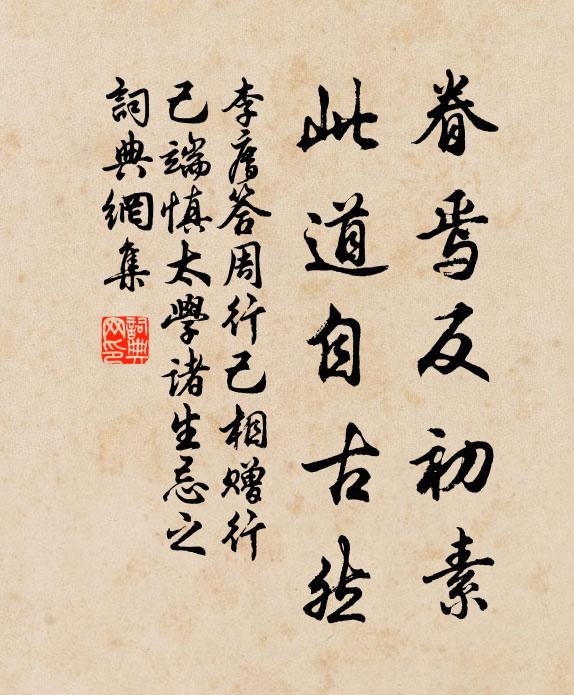 眷焉反初素
此道自古然
李廌答周行己相赠行
己端慎太學诸生忌之
詞典網集
詞典網印